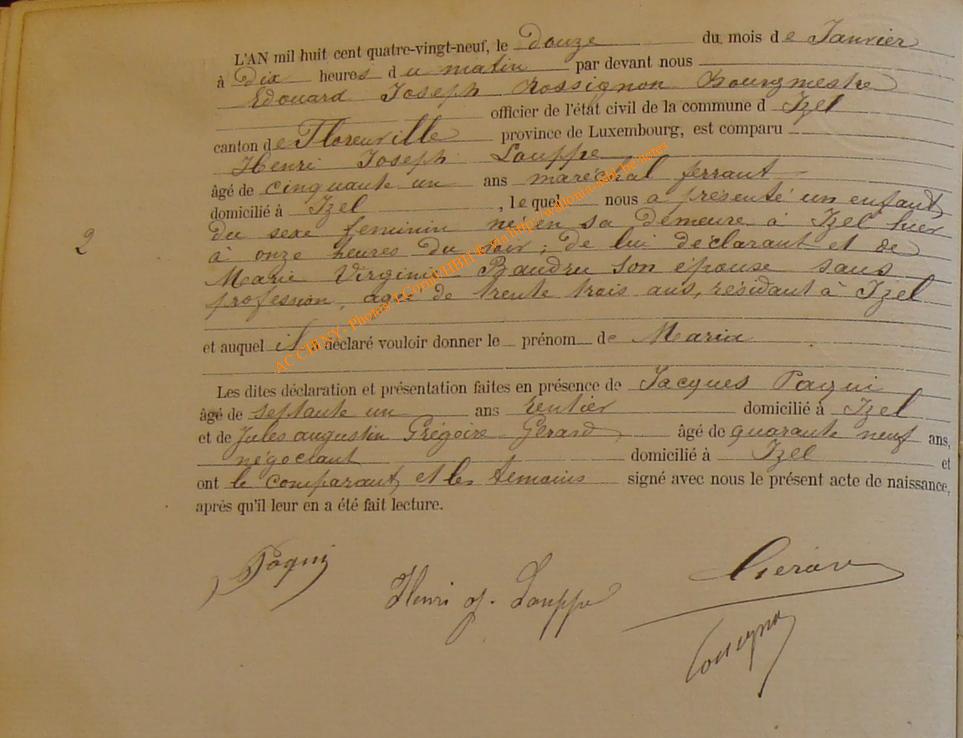 L'AN mil huit cent quatre-vingt-neuf, le Douze du mois de Janvier
à Dix heures du matin par devant nous
Edouard Joseph Rossignon Bourgmestre
officier de l'état civil de la commune d Izel
canton de Florenville province de Luxembourg, est comparu
Henri Joseph Louppe
âgé de cinquante un ans maréchal ferrant
domicilié à Izel, lequel nous a présenté un enfant
du sexe feminin né en sa demeure à Izel hier
2
à onze heures du soir; de lui déclarant et de
Marie Virginie Baudru son épouse sans
profession, agée de trente trois ans, résidant à Izel
et auquel il a déclaré vouloir donner le prénom de Maria
Les dites déclaration et présentation faites en présence de Jacques Paqui
âgé de septante un ans rentier domicilié à Izel
et de Jules augustin Grégoire Gerard âgé de quarante neuf ans,
négociant domicilié à Izel et
ont le comparant, et les témoins signé avec nous le présent acte de naissance,
après qu'il leur en a été fait lecture.
Paqui
Henri J. Louppe
Gérard